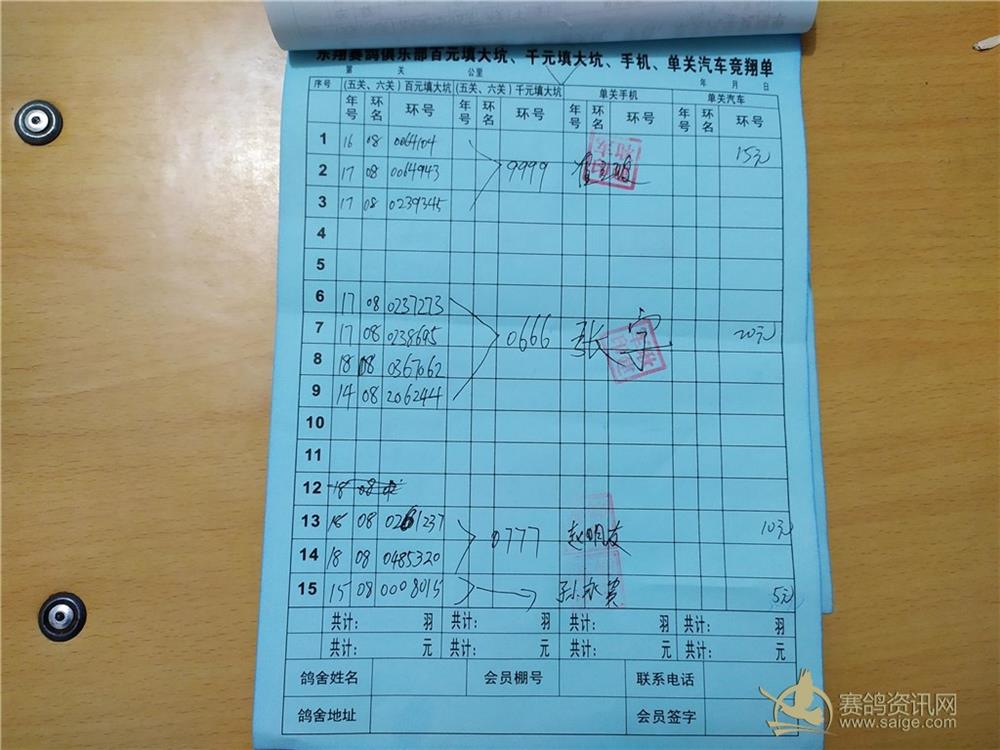 东翔赛鸽俱乐部百元填大坑、千元填大坑、手机、单关汽车竞翔单
第 关 公里 年 月 日
序号 (五关、六关)百元填大坑 (五关、六关)千元填大坑 单关手机 单关汽车
年号 环名 环号 年号 环名 环号 年号 环名 环号 年号 环名 环号
1 16 08 0064104 15元
2 17 08 0014943 9999
3 17 08 0239345
4
5
6 17 08 0237273
7 17 08 0238695 0666 张宇 20元
8 18 08 0367062
9 14 08 2062444
10
11
12 18 08
13 18 08 0261237 0777 赵明友 10元
14 18 08 0485320
15 15 08 0008015 孙永贵 5元
共计: 羽 共计: 羽 共计: 羽 共计: 羽
共计: 元 共计: 元 共计: 元 共计: 元
鸽舍姓名 会员棚号 联系电话
鸽舍地址 会员签字
赛鸽资讯网
www.saige.com